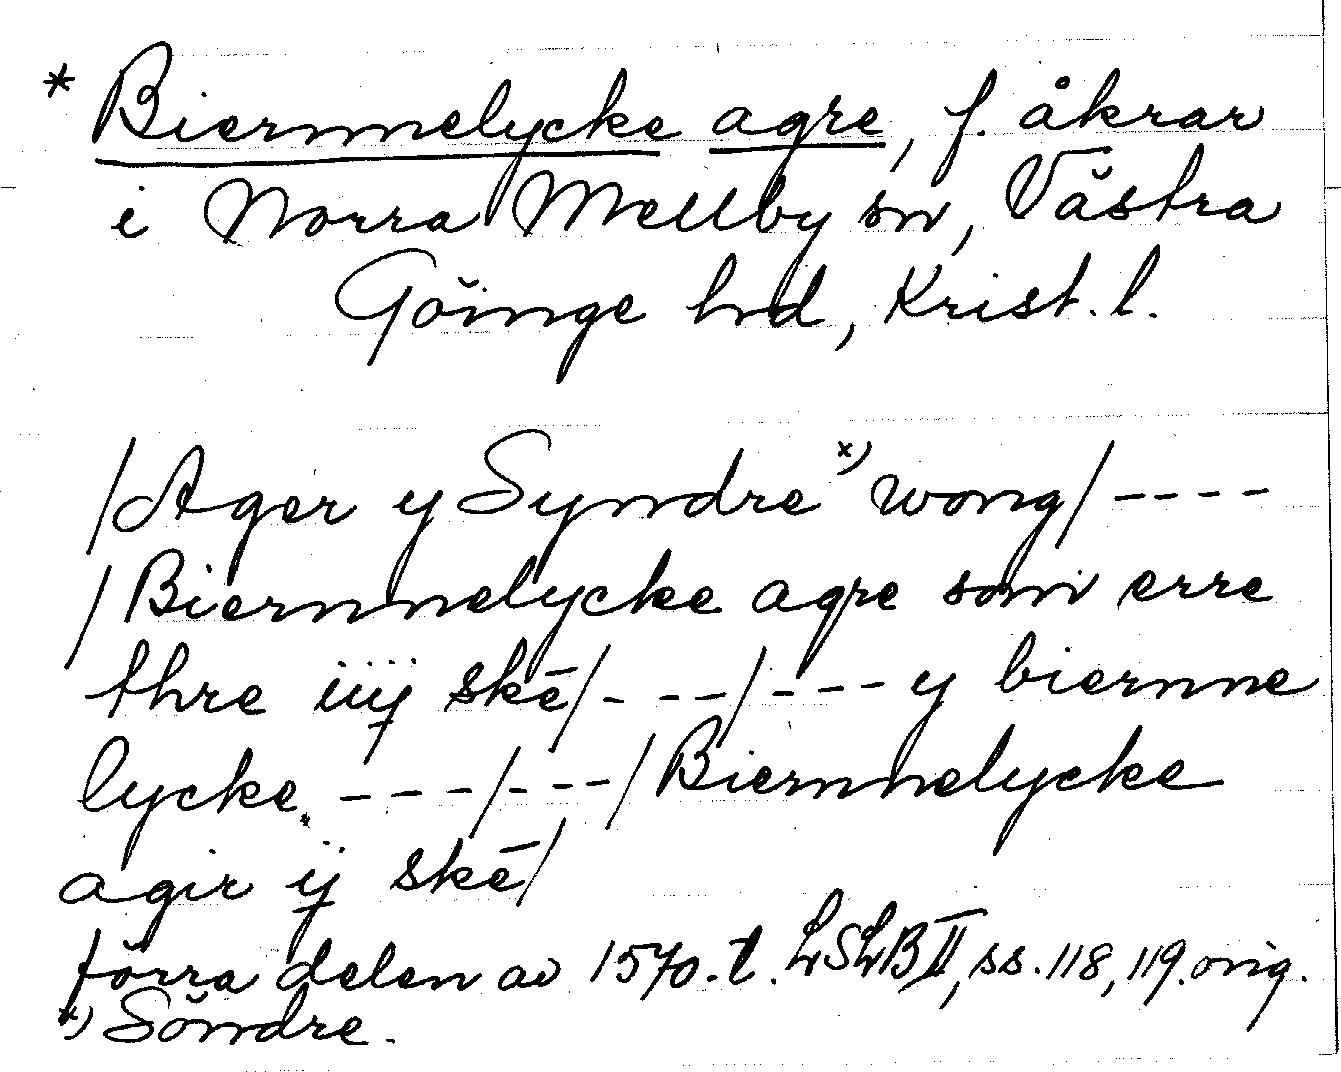 * Biernnelycke agre, f. åkrar
i Norra Mellby sn, Västra
Göinge hrd, Krist. l.
/Ager y Syndre x) wong/ ----
/Biernnelycke agre som erre
thre iiij skē/----/---- y biernne
lycke. ----/---/Biernnelycke
agir ij skē/
förra delen av 1570-t. LSLB II, ss. 118, 119. orig.
x) Söndre.